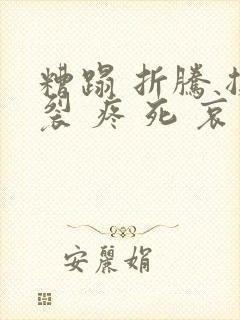 糟蹋 折騰
裂 疼 死 哀
安麗娟